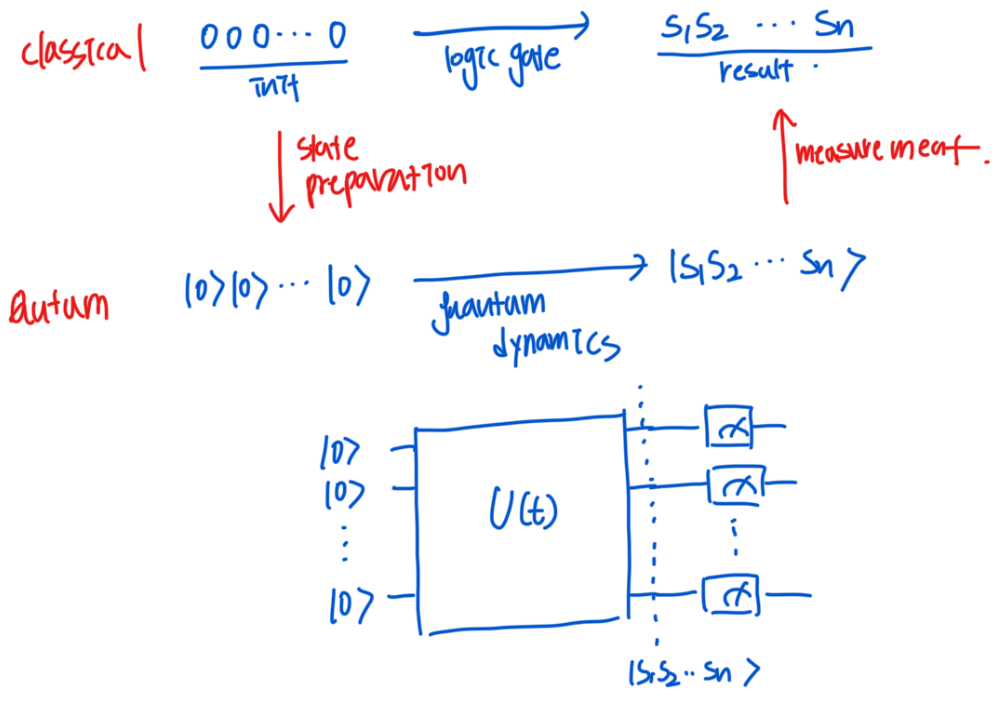 classical 000···0 logic gate S₁S₂ ··· Sn
init result.
state
preparation
measurement.
Qutum |0>|0>···|0> quantum
dynamics |S₁S₂ ··· Sn>
|0>
|0>
⋮
|0>
U(t)
|S₁S₂··Sn>